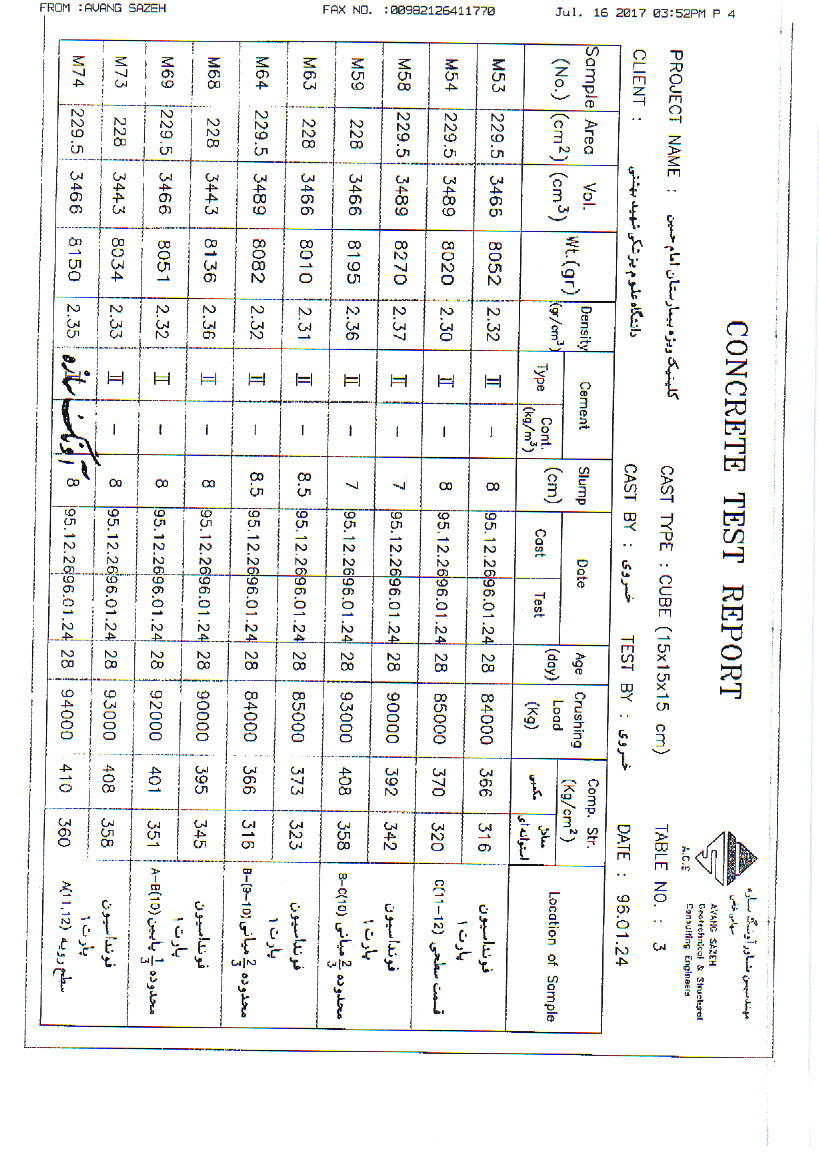 FROM :AVANG SAZEH FAX NO. :00982126411770 Jul. 16 2017 03:52PM P 4
CONCRETE TEST REPORT
مهندسین مشاور آونگ سازه
سهامی خاص
AVANG SAZEH
Geotechnical & Structural
Consulting Engineers
A.C.E
PROJECT NAME : کلینیک ویژه بیمارستان امام حسین CAST TYPE : CUBE (15x15x15 cm) TABLE NO. : 3
CLIENT : دانشگاه علوم پزشکی شهید بهشتی CAST BY : خسروی TEST BY : خسروی DATE : 96.01.24
Sample (No.) Area (cm²) Vol. (cm³) Wt.(gr) Density (gr/cm³) Cement Type Cont. (kg/m³) Slump (cm) Date Cast Test Age (day) Crushing Load (Kg) Comp. Str. (Kg/cm²) مکعبی معادل استوانه‌ای Location of Sample
M53 229.5 3466 8052 2.32 II – 8 95.12.26 96.01.24 28 84000 366 316 فونداسیون
پارت ۱
M54 229.5 3489 8020 2.30 II – 8 95.12.26 96.01.24 28 85000 370 320 قسمت سطحی C(11-12)
M58 229.5 3489 8270 2.37 II – 7 95.12.26 96.01.24 28 90000 392 342 فونداسیون
پارت ۱
M59 228 3466 8195 2.36 II – 7 95.12.26 96.01.24 28 93000 408 358 محدوده 2/3 میانی B-C(10)
M63 228 3466 8010 2.31 II – 8.5 95.12.26 96.01.24 28 85000 373 323 فونداسیون
پارت ۱
M64 229.5 3489 8082 2.32 II – 8.5 95.12.26 96.01.24 28 84000 366 316 محدوده 2/3 میانی B-(9-10)
M68 228 3443 8136 2.36 II – 8 95.12.26 96.01.24 28 90000 395 345 فونداسیون
پارت ۱
M69 229.5 3466 8051 2.32 II – 8 95.12.26 96.01.24 28 92000 401 351 محدوده 1/3 پایین A-B(10)
M73 228 3443 8034 2.33 II – 8 95.12.26 96.01.24 28 93000 408 358 فونداسیون
پارت ۱
M74 229.5 3466 8150 2.35 8 95.12.26 96.01.24 28 94000 410 360 سطح رویه A(11,12)
آونگ سازه